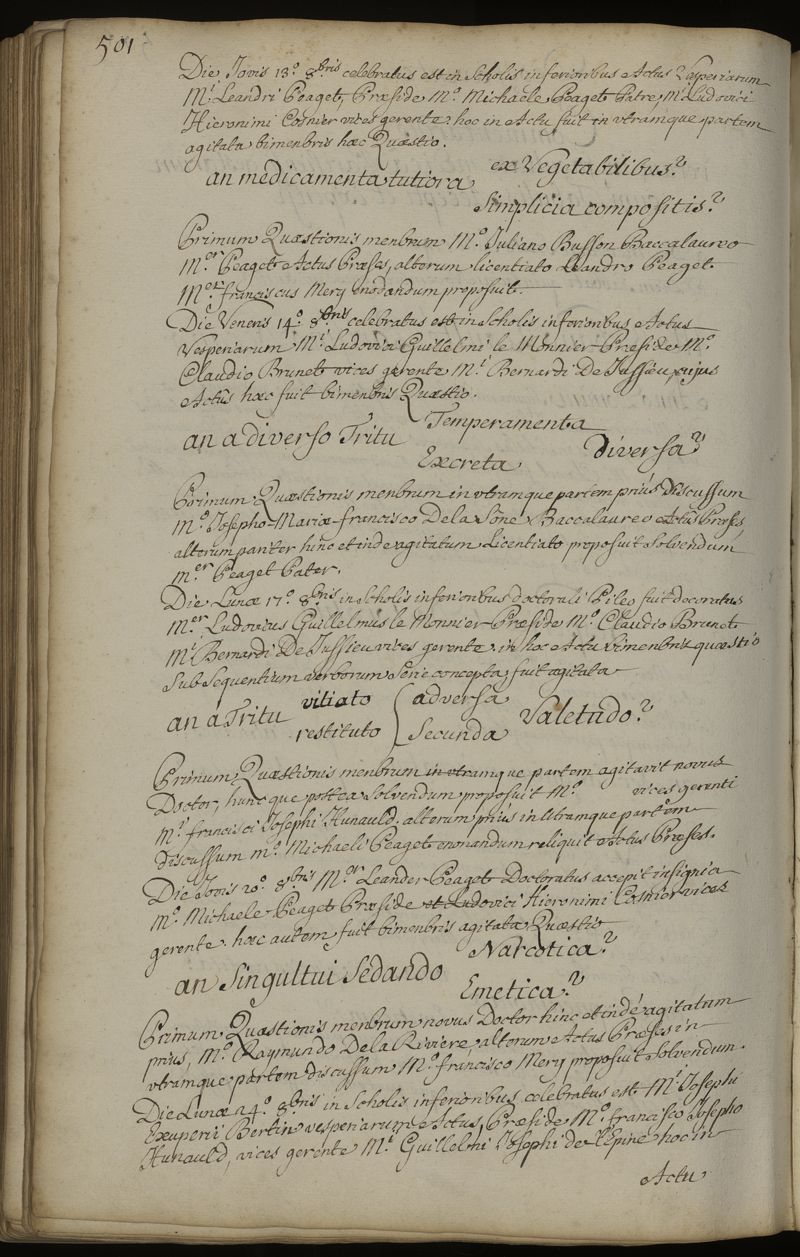 501
Die Jovis 13.° 8.bris celebratus est in Scholis inferioribus Actus Vesperiarum
M.i Leandri Peaget, Præside M.° Michaele Peaget Patre, M.i Ludovici
Hieronimi Cosnier vices gerente. hoc in Actu fuit in vtramque partem
agitata bimenbris hæc Quæstio.
an medicamenta tutiora ex Vegetabilibus?
Simplicia compositis?
Primum Quæstionis menbrum M.° Juliano Busson Baccalaureo
M.er Peaget Actus Præses, alterum licentiato Leandro Peaget
M.er franciscus Mery enodandum proposuit.
Die Veneris 14.° 8.bris celebratus est in Scholis inferioribus Actus
Vesperiarum M.i Ludovici Guillelmi le Monnier Præside M.°
Claudio Brunet vices gerente M.i Bernardi De Jussieu, cujus
Actûs hæc fuit bimenbris Quæstio.
an a diverso Tritu Temperamenta diversa?
Excreta
Primum Quæstionis menbrum in vtramque partem priùs discussum
M.° Josepho-Maria-francisco De la Sône Baccalaureo Actûs Præses,
alterum pariter hinc et inde agitatum Licentiato proposuit Solvendum
M.er Peaget Pater.
Die Lunæ 17.° 8.bris in Scholis inferioribus doctorali Pileo fuit decoratus
M.er Ludovicus Guillelmus le Monnier Præside M.° Claudio Brunet
M.i Bernardi De Jussieu vices gerente. in hoc Actu bimenbris quæstio
Sub Sequentium verborum Serie concepta, fuit agitata
an a Tritu vitiato adversa Valetudo?
restituto Secunda
Primum Quæstionis menbrum in vtramque partem agitavit novus
Doctor, huncque postea Solvendum proposuit M.° vices gerenti
M.i francisci Josephi Hunauld. alterum priùs in Utramque partem
discussum M.° Michaeli Peaget enodandum reliquit Actus Præses.
Die Jovis 20.° 8.bris M.er Leander Peaget Doctoratus accepit insignia
M.° Michaele Peaget Præside et Ludovici Hieronimi Cosnier vices
gerente. hæc autem fuit bimenbris agitata Quæstio
an Singultui Sedando Narcotica?
Emetica?
Primum Quæstionis menbrum novus Doctor hinc et indè agitatum
prius, M.° Raymundo De la Riviere, alterum Actus Præses in
vtramque partem discussum M.° francisco Mery proposuit Solvendum.
Die Lunæ 24.° 8.bris in Scholis inferioribus celebratus est M.i Josephi
Exuperii Bertin vesperiarum Actus, Præside M.° francisco Josepho
Hunauld, vices gerente M.i Guillelmi Josephi de l'Epine hoc in
Actu